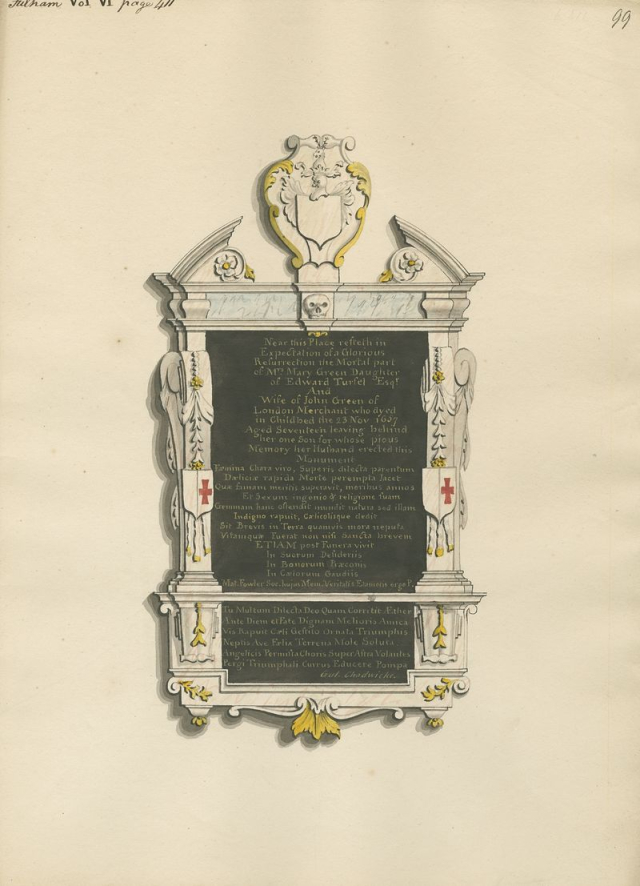 Fulham Vol VI page 411
99
Near this Place resteth in
Expectation of a Glorious
Resurrection the Mortal part
of Mrs Mary Green Daughter
of Edward Turfel Esqr
And
Wife of John Green of
London Merchant who dyed
in Childbed the 23 Nov 1657
Aged Seventeen leaving behind
her one Son for whose pious
Memory her Husband erected this
Monument
Fæmina Chara viro, Superis dilecta parentum
rapida Morte perempta Jacet
Quæ famam meritis superavit, moribus annos
Et Sexum ingenio & religione suam
Gemmam hanc ostendit mundi natura sed illam
Indigno rapuit, Cælicolisque dedit
Sit Brevis in Terra quamvis mora neputa
Vitamque Fuerat non nisi Sancta brevem
ETIAM post Funera vivit
In Suorum Desideriis
In Bonorum Præconiis
In Cælorum Gaudiis
Mat. Fowler Sac. Mem. Veritatis Etamini ergo P.
Tu Multum Dilecta Deo Quam Corretit Æther
Ante Diem et Fate Dignam Meliora Amica
Vis Rapuit Cœli Gestito Ornata Triumphis
Neptis Ave Felix Terrena Mole Soluta
Angelicis Permista Choris Super Astra Volantes
Pergi Triumphali Currus Educere Pompa
Chadwicke.